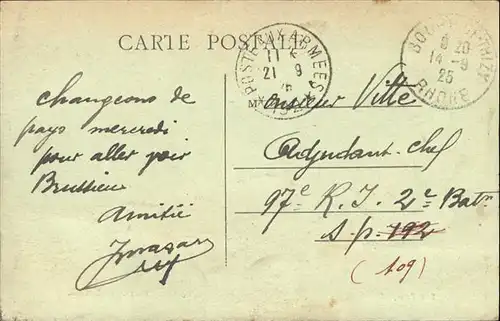 CARTE POSTALE
POSTE AUX ARMEES
11
21 - 9
25
* 192 *
8 20
14 - 9
25
RHONE
changeons de
pays mercredi
pour aller voir
Brussieu
Amitié
Monsieur Vitte
Adjudant-chef
97e R.I. 2e Batn
S.p. 192
(109)